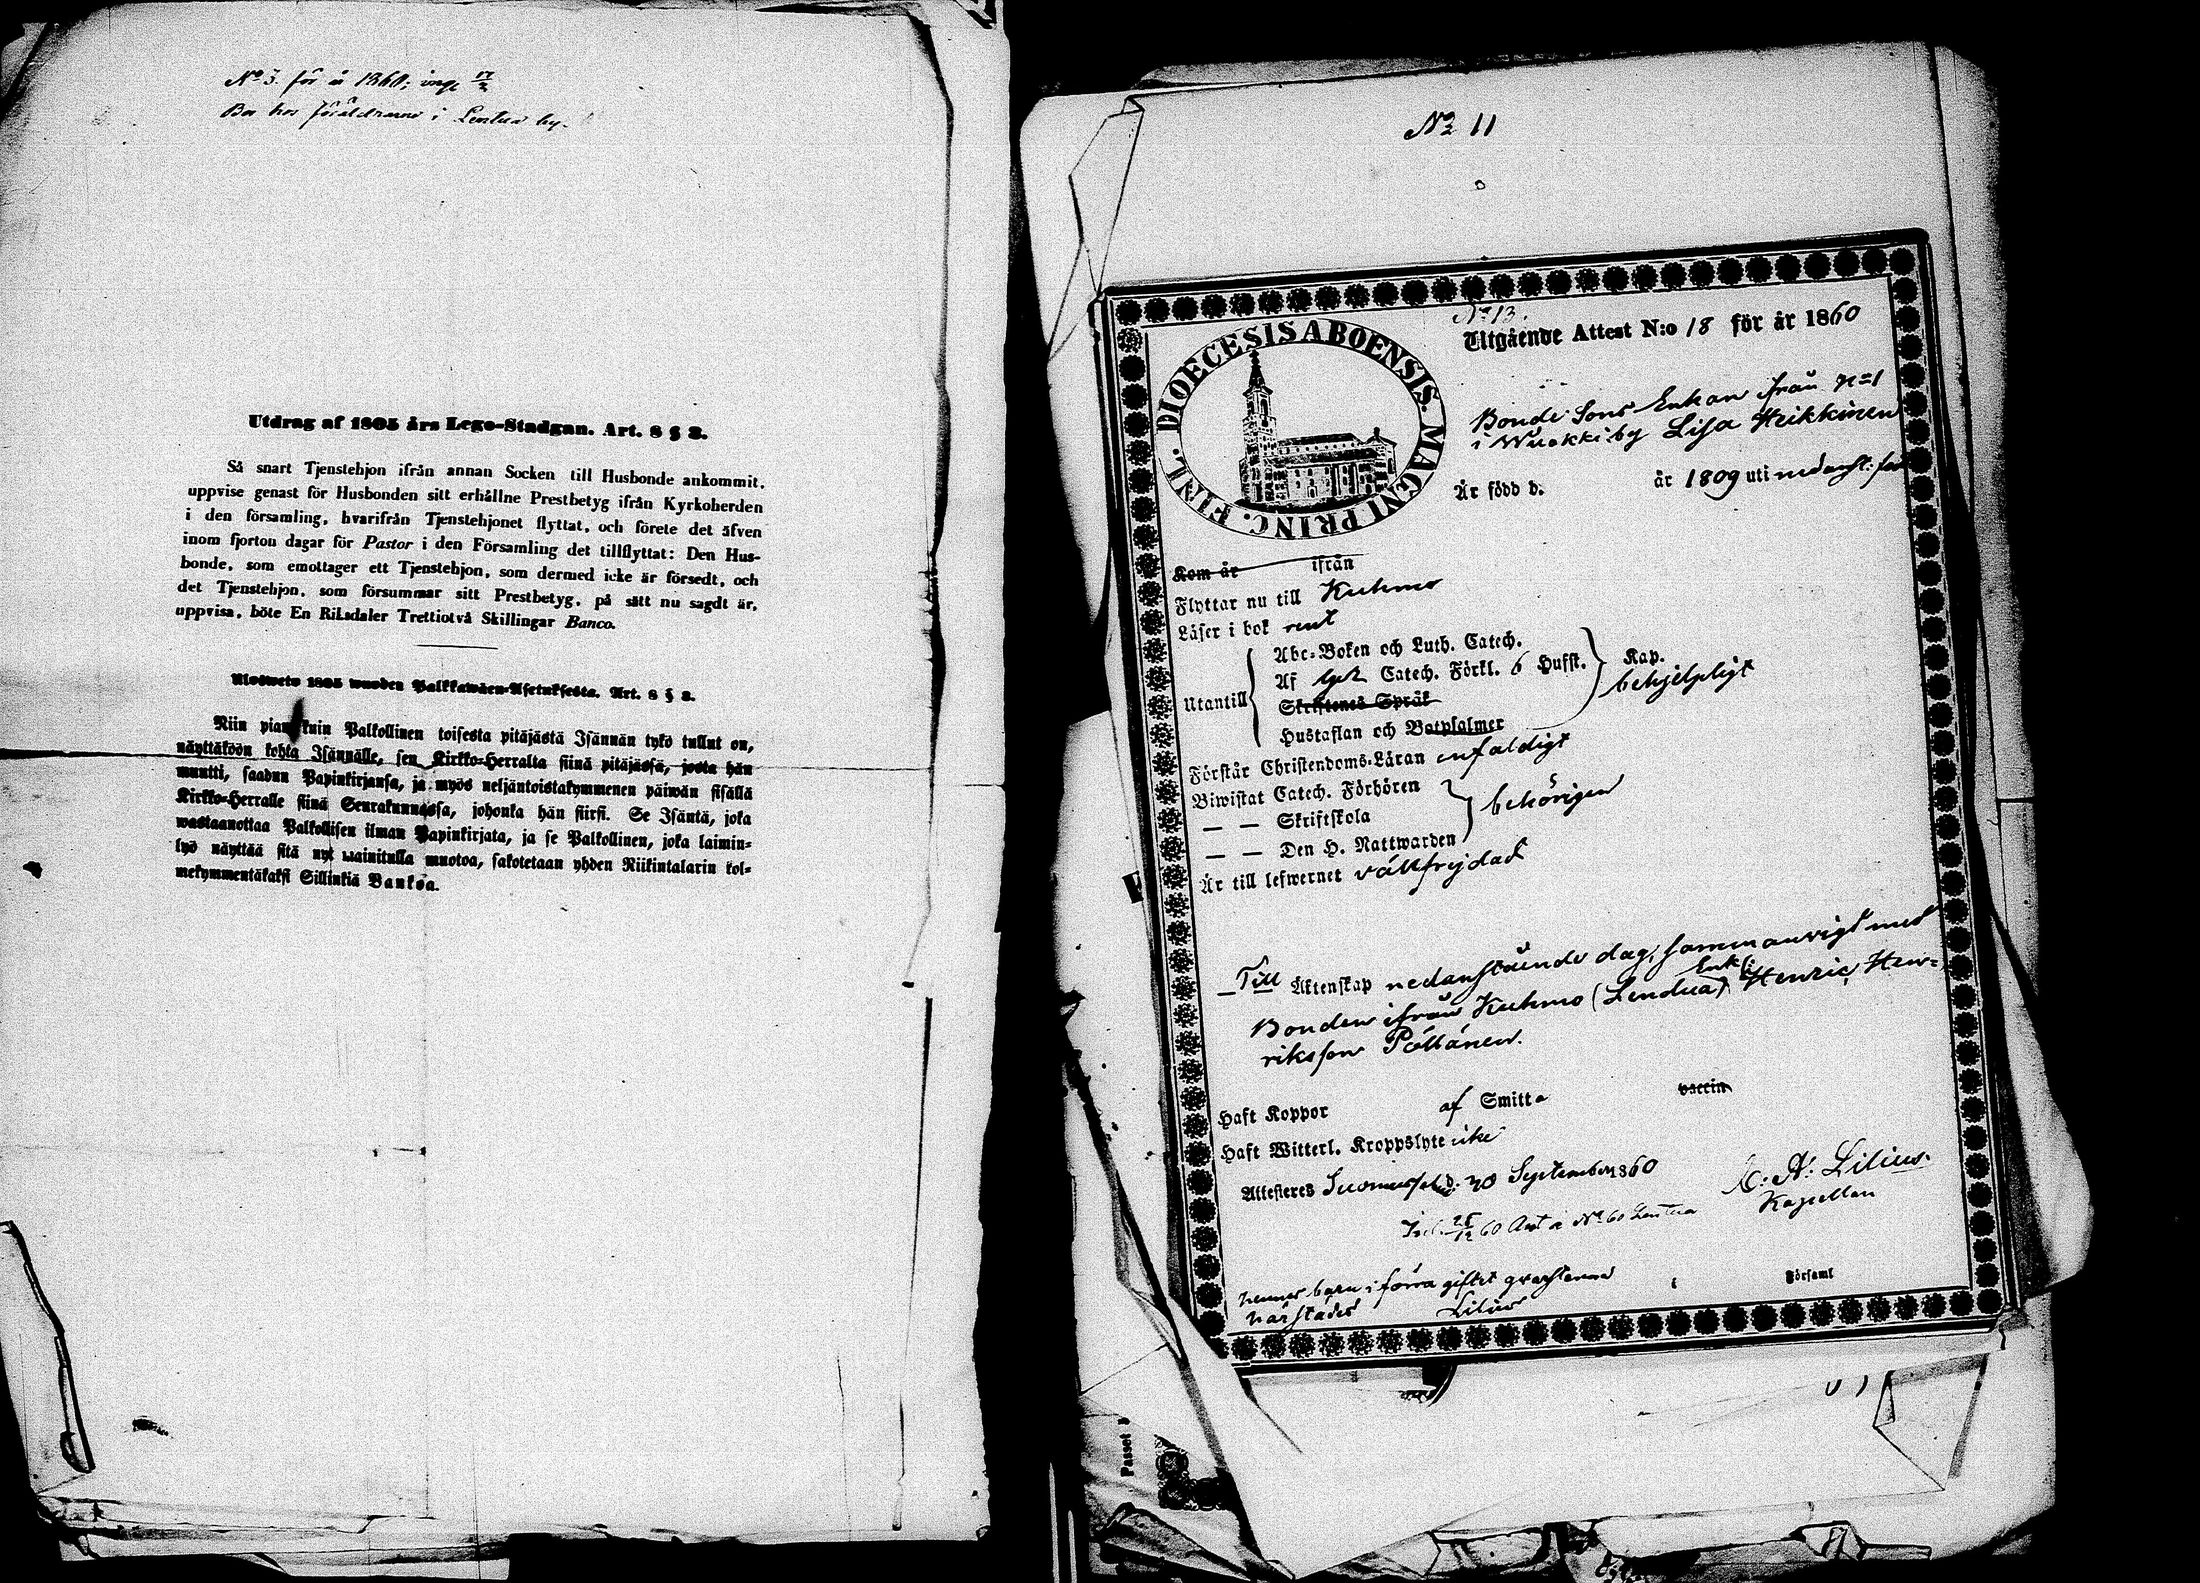 No 3. för år 1860; ing. 17/2
Bor hos föräldrarne i Lentua by.
Utdrag af 1805 års Lego-Stadgan. Art. 8 § 3.
Så snart Tjenstehjon ifrån annan Socken till Husbonde ankommit,
uppvise genast för Husbonden sitt erhållne Prestbetyg ifrån Kyrkoherden
i den församling, hvarifrån Tjenstehjonet flyttat, och förete det äfven
inom fjorton dagar för Pastor i den Församling det tillflyttat: Den Hus-
bonde, som emottager ett Tjenstehjon, som dermed icke är försedt, och
det Tjenstehjon, som försummar sitt Prestbetyg, på sätt nu sagdt är,
uppvisa, böte En Riksdaler Trettiotvå Skillingar Banco.
Ulosweto 1805 wuoden Palkkawäen-Asetuksesta. Art. 8 § 3.
Niin pian kuin Palkollinen toisesta pitäjästä Isännän tykö tullut on,
näyttäköön kohta Isännälle, sen Kirkko-Herralta siinä pitäjässä, josta hän
muutti, saadun Papinkirjansa, ja myös neljäntoistakymmenen päiwän sisällä
Kirkko-Herralle siinä Seurakunnassa, johonka hän siirsi. Se Isäntä, joka
wastaanottaa Palkollisen ilman Papinkirjata, ja se Palkollinen, joka laimin-
lyö näyttää sitä nyt mainitulla muotoa, sakotetaan yhden Riikintalarin kol-
mekymmentäkaksi Sillinkiä Bankoa.
No 11
No 13.
Utgående Attest N:o 18 för år 1860
DIOECESIS ABOENSIS. MAGNI PRINC. FINL.
Bonde Sons Enkan från No 1
i Wuokki by Lisa Heikkinen
Är född d. år 1809 uti nedanst: för
Kom år ifrån
Flyttar nu till Kuhmo
Läser i bok rent
Utantill
Abc-Boken och Luth. Catech.
Af Catech. Förkl. 6 Hufst.
Kap.
behjelpligt
Skriftenes Språk
Hustaflan och Botpsalmer
Förstår Christendoms-Läran enfaldigt
Biwistat Catech. Förhören
— — Skriftskola
behörigen
— — Den H. Nattwarden
Är till lefwernet välfrejdad
Till Äktenskap nedanstående dag, sammanvigt med
Bonden ifrån Kuhmo (Lendua) Enk: Henric Hen-
riksson Pöllänen.
Haft Koppor af Smitta vaccin
Haft Witterl. Kroppslyte icke
Attesteres Suomusf d. 20 September 1860
A: Lilius.
Kapellan
60 No 60 Lentua
hennes barn i förra giftet qvarstanna
härstädes Lilius
i Församl
Passet